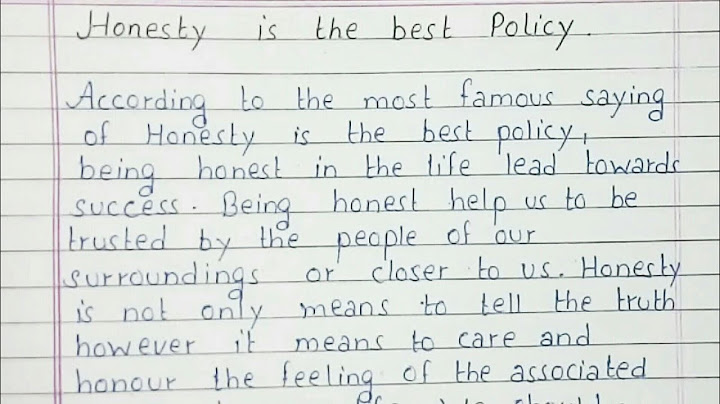 Honesty is the best Policy.
According to the most famous saying
of Honesty is the best policy,
being honest in the life lead towards
success. Being honest help us to be
trusted by the people of our
surroundings or closer to us. Honesty
is not only means to tell the truth
however it means to care and
honour the feeling of the associated